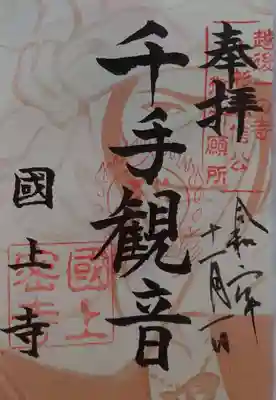 奉拝
越後
信公
願所
令和二年
十一月一日
千手觀音
國上寺
國上
密寺